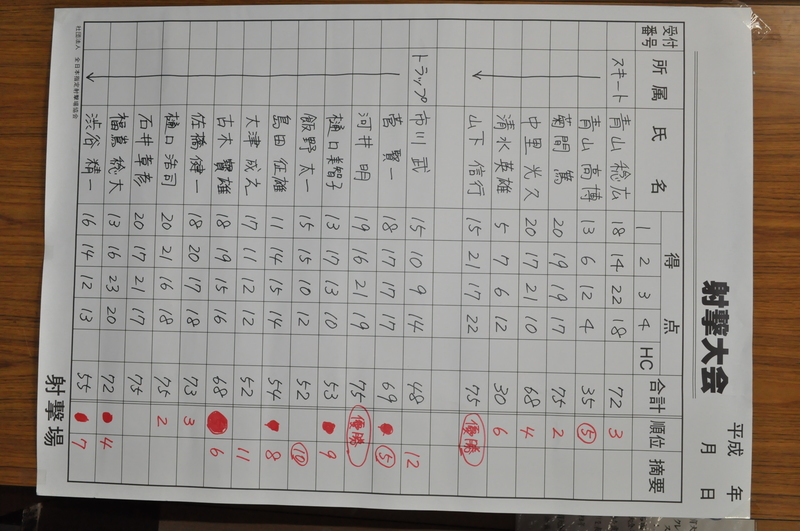 射撃大会
平成 年 月 日
受付番号 所属 氏名 得点 合計 順位 摘要
1 2 3 4 HC
スキート 青山 稔広 18 14 22 18 72 3
青山 高博 13 6 12 4 35 ⑤
菊間 篤 20 19 19 17 75 2
中里 光久 20 17 21 10 68 4
清水 英雄 5 7 6 12 30 6
山下 信行 15 21 17 22 75 優勝
トラップ 市川 武 15 10 9 14 48 12
菅 賢一 18 17 17 17 69 ⑤
河井 明 19 16 21 19 75 優勝
樋口 美智子 13 17 13 10 53 9
飯野 太一 15 15 10 12 52 ⑩
島田 征雄 11 14 15 14 54 8
大津 成之 17 11 12 12 52 11
古木 寶雄 18 19 15 16 68 6
佐橋 健一 18 20 17 18 73 3
樋口 浩司 20 21 16 18 75 2
石井 孝彦 20 17 21 17 75
福島 稔大 13 16 23 20 72 4
渋谷 精一 16 14 12 13 55 7
社団法人 全日本指定射撃場協会
射撃場